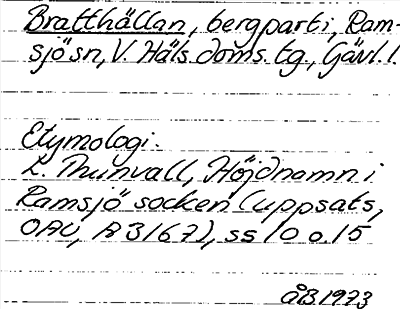 Bratthällan, bergparti, Ram-
sjö sn, V. Häls. doms. tg., Gävl. l.
Etymologi.
L. Thunvall, Höjdnamn i
Ramsjö socken (uppsats,
OAU, A 3167), ss 10 o. 15
åB 1973